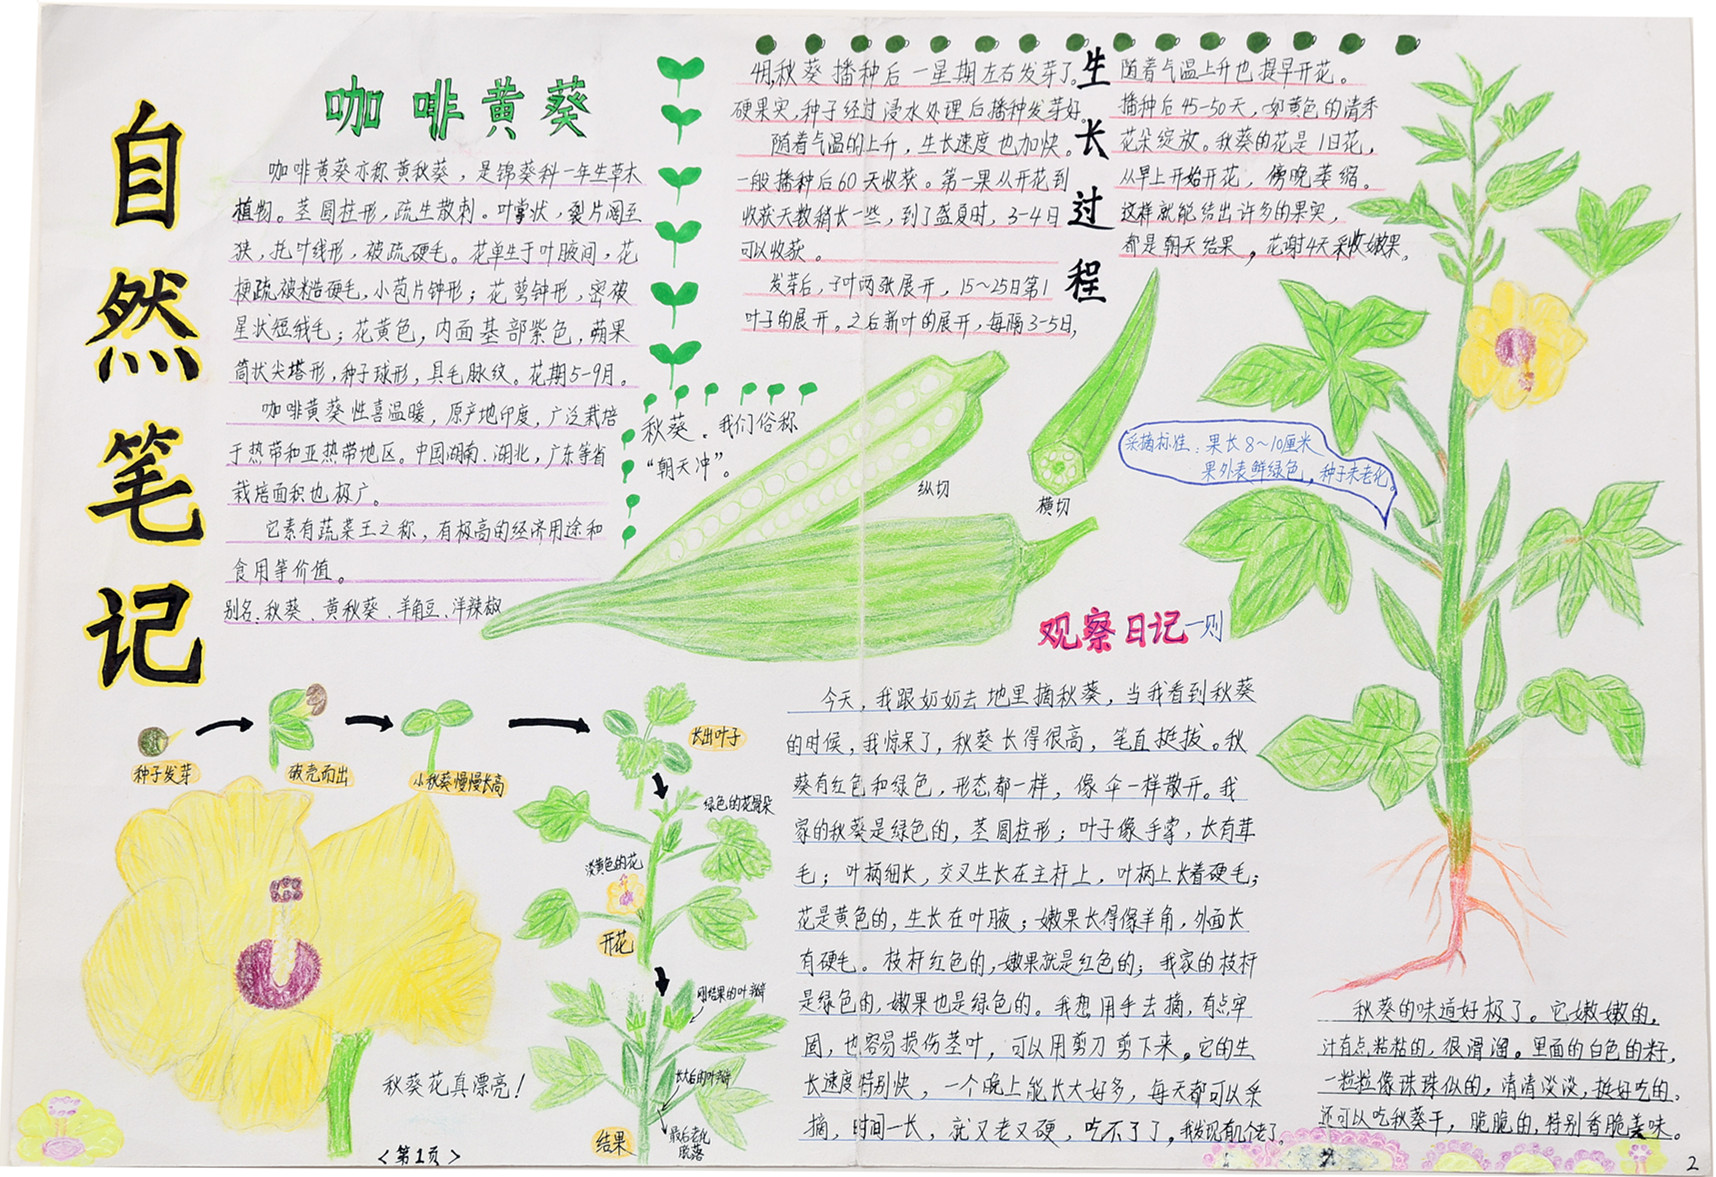 自然笔记
咖啡黄葵
咖啡黄葵亦称黄秋葵，是锦葵科一年生草本
植物。茎圆柱形，疏生散刺。叶掌状，裂片阔至
狭，托叶线形，被疏硬毛。花单生于叶腋间，花
梗疏被糙硬毛，小苞片钟形；花萼钟形，密被
星状短绒毛；花黄色，内面基部紫色，蒴果
筒状尖塔形，种子球形，具毛脉纹。花期5-9月。
咖啡黄葵性喜温暖，原产地印度，广泛栽培
于热带和亚热带地区。中国湖南、湖北，广东等省
栽培面积也极广。
它素有蔬菜王之称，有极高的经济用途和
食用等价值。
别名：秋葵、黄秋葵、羊角豆、洋辣椒
秋葵、我们俗称
“朝天冲”。
生长过程
4月，秋葵播种后一星期左右发芽了。
硬果实，种子经过浸水处理后播种发芽好。
随着气温的上升，生长速度也加快。
一般播种后60天收获。第一果从开花到
收获天数稍长一些，到了盛夏时，3-4日
可以收获。
发芽后，子叶两张展开，15～25日第1
叶子的展开。之后新叶的展开，每隔3-5日，
随着气温上升也提早开花。
播种后45-50天，奶黄色的清秀
花朵绽放。秋葵的花是1日花，
从早上开始开花，傍晚萎缩。
这样就能结出许多的果实，
都是朝天结果，花谢4天采收嫩果。
纵切
横切
采摘标准：果长8～10厘米
果外表鲜绿色，种子未老化。
种子发芽
破壳而出
小秋葵慢慢长高
长出叶子
绿色的花骨朵
淡黄色的花
开花
刚结果的叶瓣
长大后的叶瓣
最后老化
脱落
结果
秋葵花真漂亮！
<第1页>
观察日记一则
今天，我跟奶奶去地里摘秋葵，当我看到秋葵
的时候，我惊呆了，秋葵长得很高，笔直挺拔。秋
葵有红色和绿色，形态都一样，像伞一样散开。我
家的秋葵是绿色的，茎圆柱形；叶子像手掌，长有茸
毛；叶柄细长，交叉生长在主杆上，叶柄上长着硬毛；
花是黄色的，生长在叶腋；嫩果长得像羊角，外面长
有硬毛。枝杆红色的，嫩果就是红色的；我家的枝杆
是绿色的，嫩果也是绿色的。我想用手去摘，有点牢
固，也容易损伤茎叶，可以用剪刀剪下来。它的生
长速度特别快，一个晚上能长大好多，每天都可以采
摘，时间一长，就又老又硬，吃不了了，我发现有几个老了。
秋葵的味道好极了。它嫩嫩的，
汁有点粘粘的，很滑溜。里面的白色的籽，
一粒粒像珠珠似的，清清淡淡，挺好吃的。
还可以吃秋葵干，脆脆的，特别香脆美味。
2